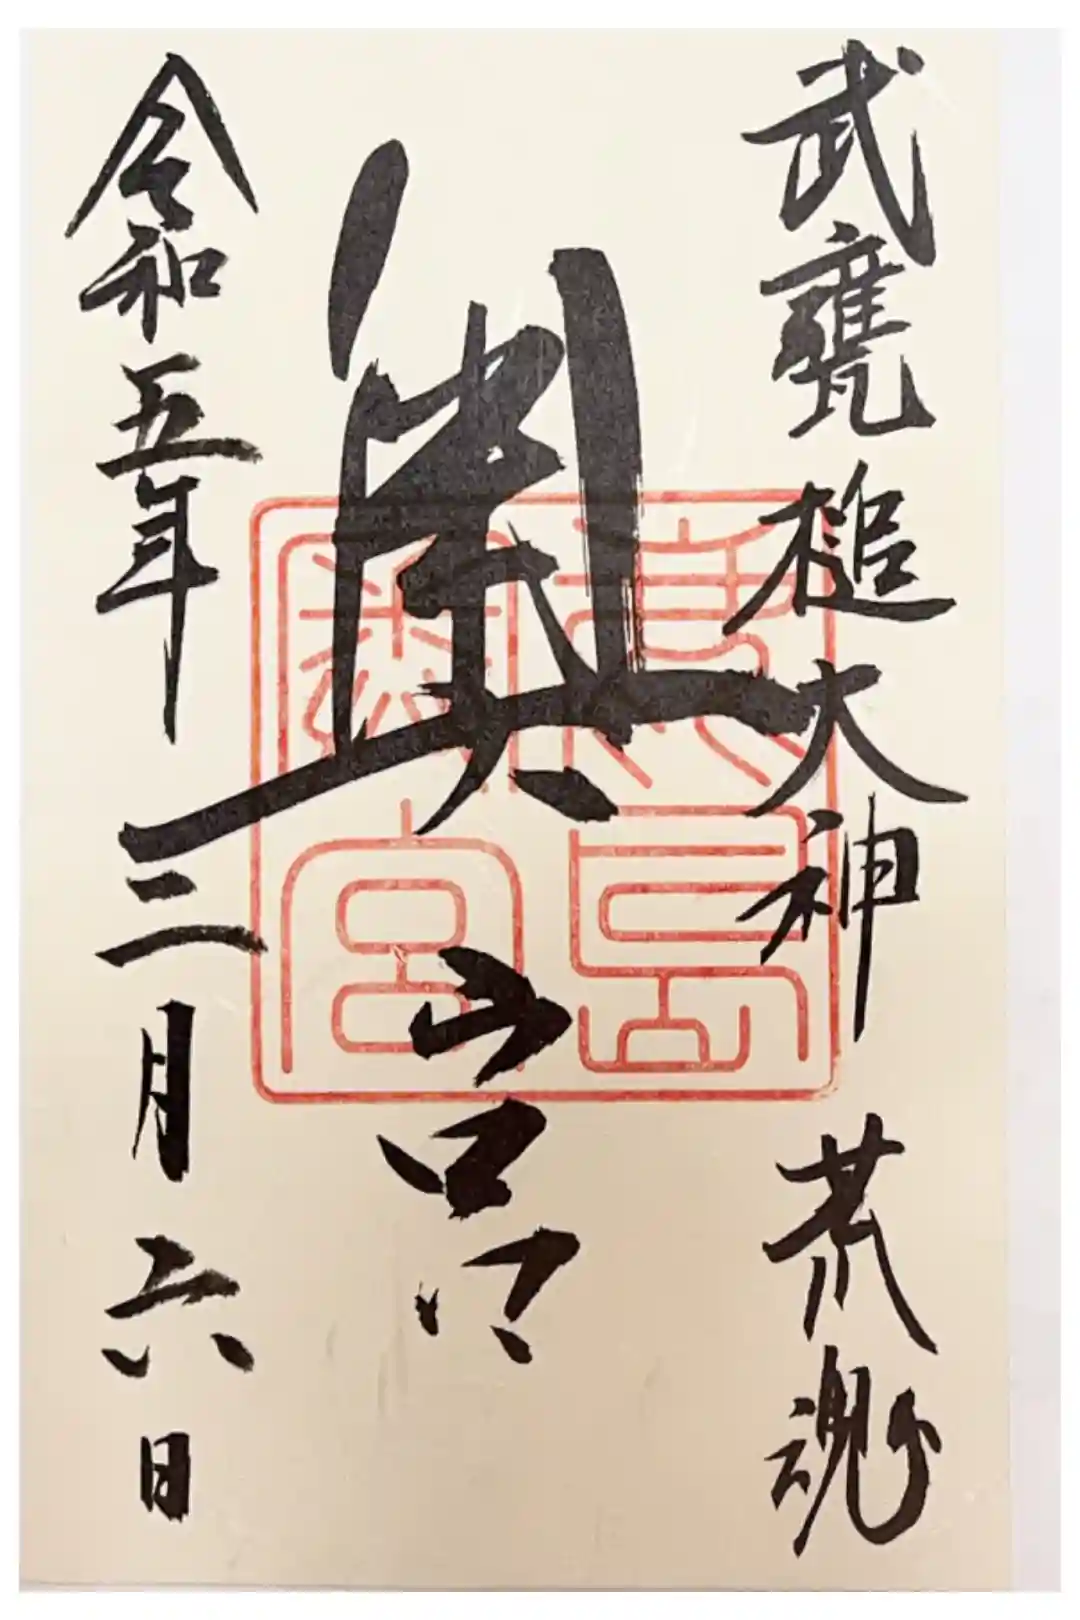 武甕槌大神 荒魂
奥宮
令和五年三月六日
鹿島神宮